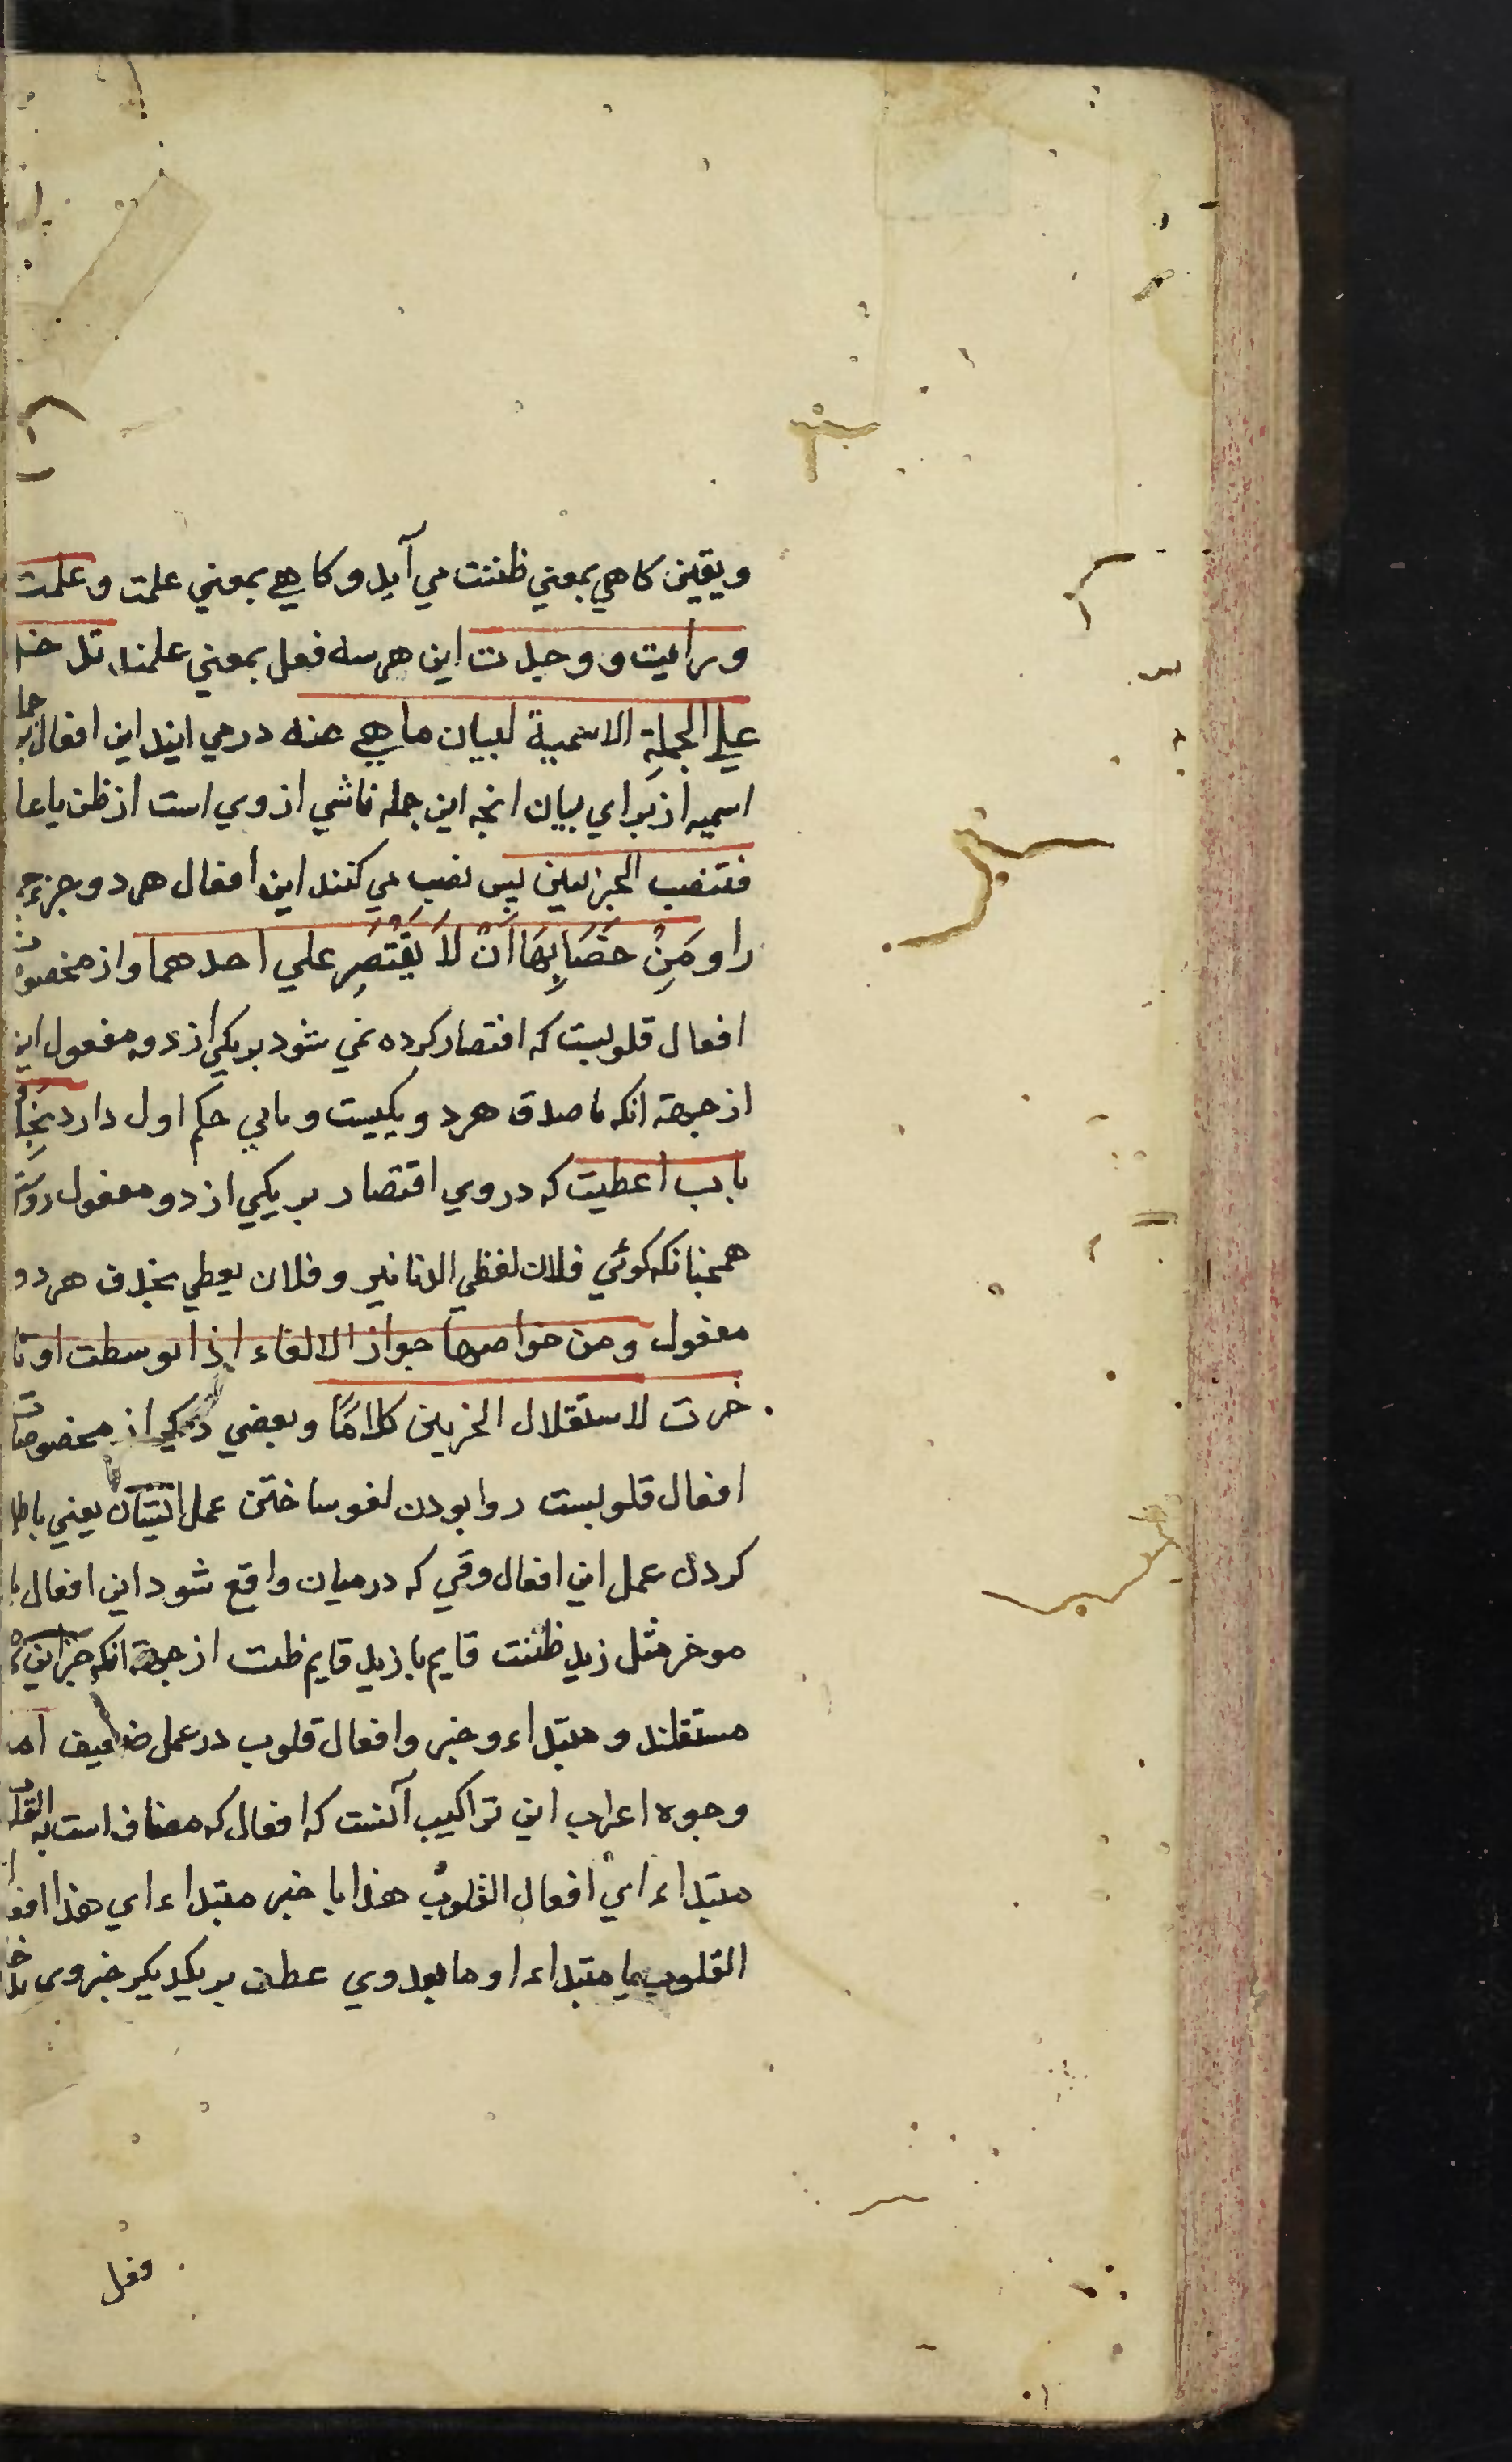 ويقين كاهي بمعني ظننت مي آيد و كاهي بمعني علمت و علمت
و رأيت و وجدت اين هرسه فعل بمعني علمند تدخل
علي الجملة الاسمية لبيان ما هي عنه در مي ايند اين افعال بر جملۀ
اسميه از براي بيان انچه اين جمله ناشي از وي است از ظن يا علم
فتنصب الجزئين پس نصب مي كنند اين افعال هردو جزء جمله
را و مَِنْ خصَايِصِهَا اَنْ لَا يُقْتَصَر علي احدهما و از مخصوصات
افعال قلوبست كه اقتصار كرده نمي شود بر يكي از دو مفعول اين
از جهة انكه ما صدق هردو يكيست و ثاني حكم اول دارد بخلاف
باب اعطيت كه در وي اقتصار بر يكي از دو مفعول رواست
همچنانكه كوئي فلان لفظي الدنانير و فلان يعطي بحذف هردو
مفعول و من خواصها جواز الالغاء اذا توسطت او تا
خرت لاستقلال الجزئين كلامًا و بعضي ديكر از مخصوصات
افعال قلوبست روا بودن لغو ساختن عمل ايشان يعني باطل
كردن عمل اين افعال وقتي كه درميان واقع شود اين افعال يا
موخر مثل زيد ظننت قايم يا زيد قايم ظننت از جهة انكه جزئين
مستقلند و مبتداء و خبر و افعال قلوب در عمل ضعيف اما
وجوه اعراب اين تراكيب آنست كه افعال كه مضاف است به القلوب
مبتداء اي افعال القلوب هذا يا خبر مبتداء اي هذا افعال
القلوب يا مبتداء او ما بعد وي عطف بر يكديكر خبر وي
فعل